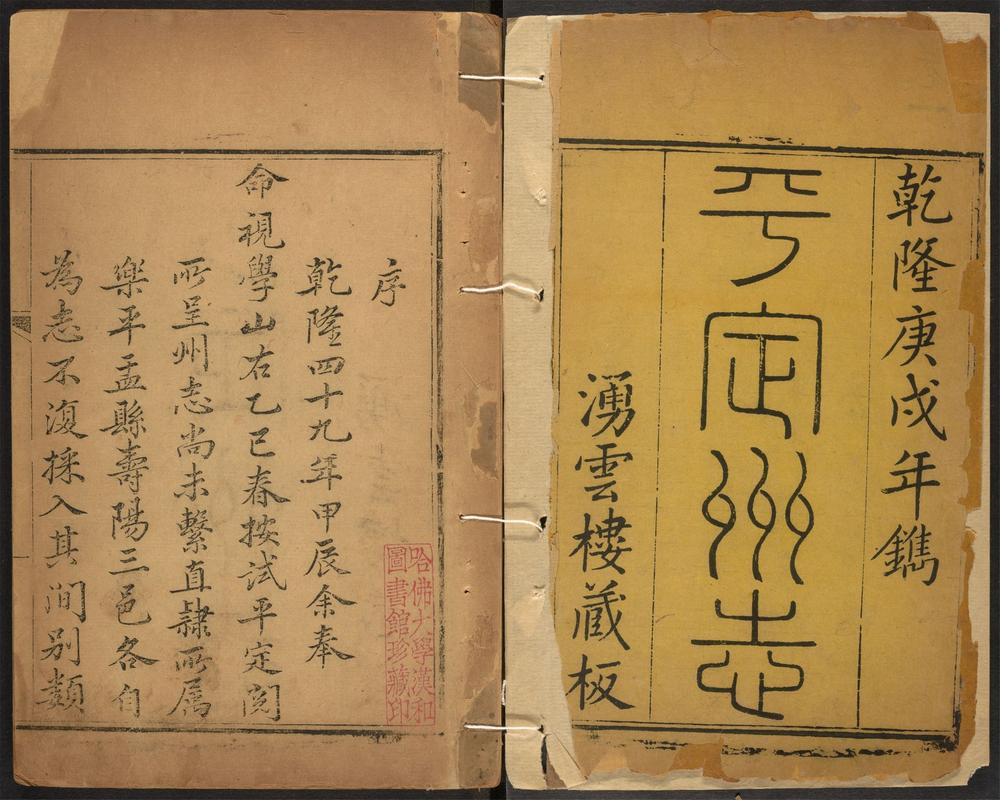 乾隆庚戌年鐫
平定州志
湧雲樓藏板
序
乾隆四十九年甲辰余奉
命視學山右乙巳春按試平定閱
所呈州志尚未繫直隸所屬
樂平盂縣壽陽三邑各自
為志不復採入其間別類
哈佛大學漢和
圖書館珍藏印